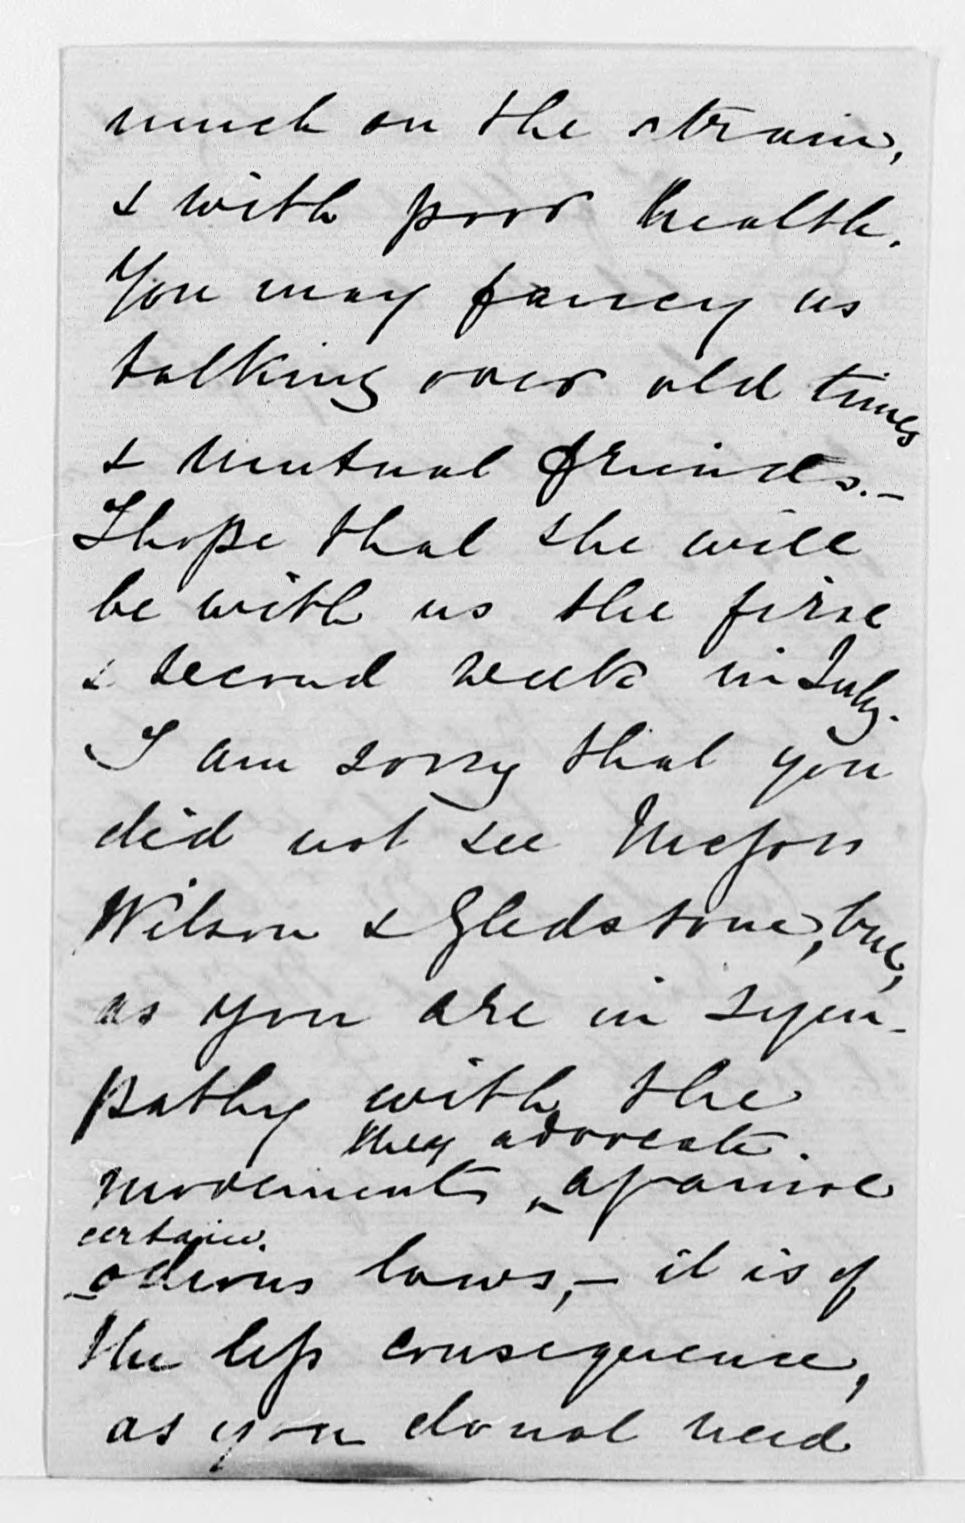 much on the strain,
& with poor health.
You may fancy us
talking over old times
& mutual friends.—
I hope that she will
be with us the first
& second week in July.
I am sorry that you
did not see Messrs
Wilson & Gledstone, but,
as you are in sym-
pathy with the
they advocate.
movements ‸ against
certain
‸odious laws,— it is of
the less consequence,
as you do not need